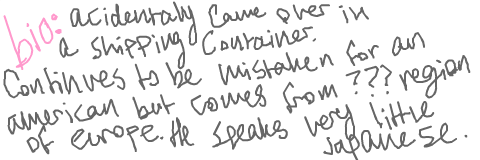 bio: acidentaly came over in
a shipping container.
Continues to be mistaken for an
american but comes from ??? region
of europe. He speaks very little
japanese.